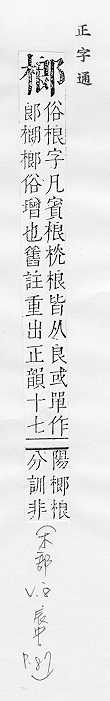 正字通
榔
俗桹字凡賓桹桄桹皆从良或單作
郎榔榔俗增也舊註重出正韻十七
陽榔桹
分訓非
(木部
v.8 辰中
p.87